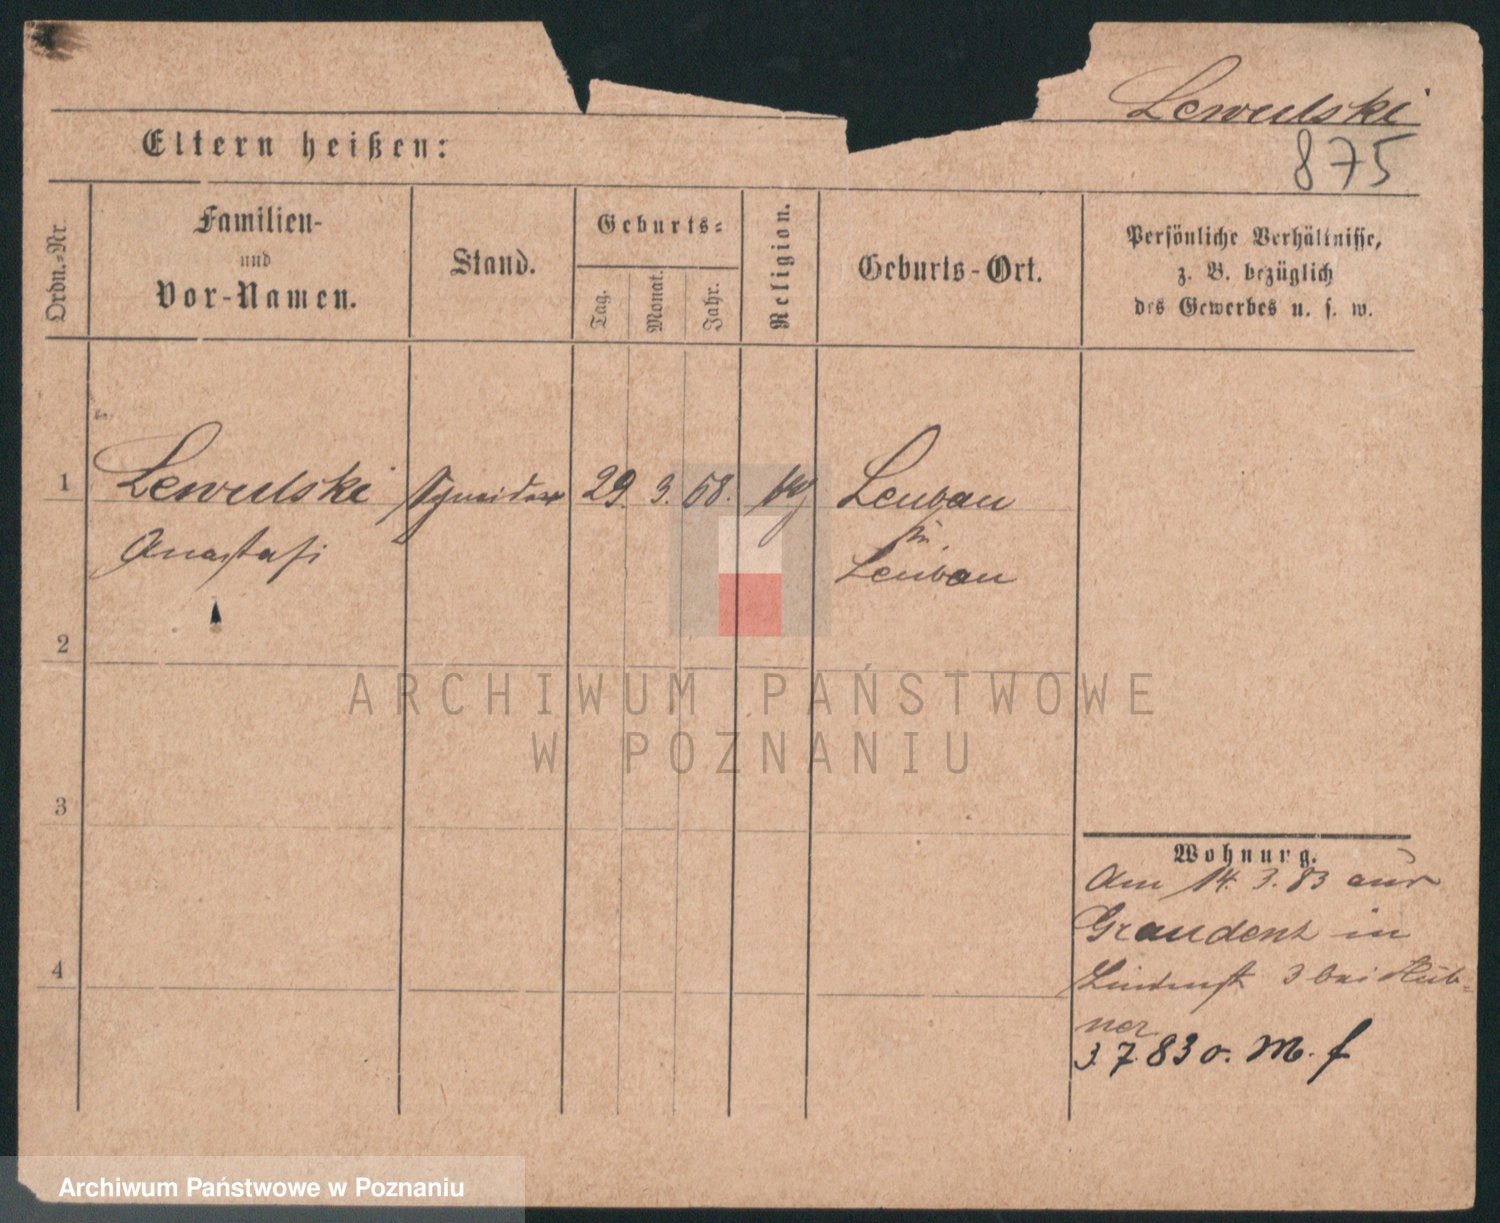 Lewulski
875
Eltern heißen:
Ordn.-Nr.
Familien-
und
Vor-Namen.
Stand.
Geburts-
Tag.
Monat.
Jahr.
Religion.
Geburts-Ort.
Persönliche Verhältnisse,
z. B. bezüglich
des Gewerbes u. s. w.
1
Lewulski
29. 3. 68.
Anastasi
2
3
4
Wohnung.
Am 14. 3. 83 aus
Graudenz in
3 bei Hüb-
ner
3. 7. 83 o. M. f
ARCHIWUM PAŃSTWOWE
W POZNANIU
Archiwum Państwowe w Poznaniu